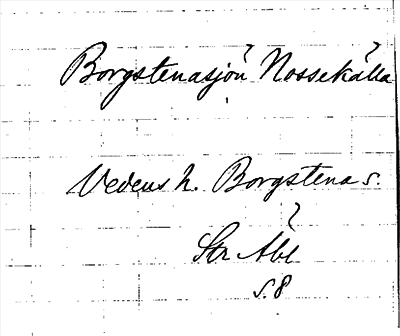 Borgstenasjön? Nossekälla?
Vedens h. Borgstena s.
?
Str Äbl
s. 8